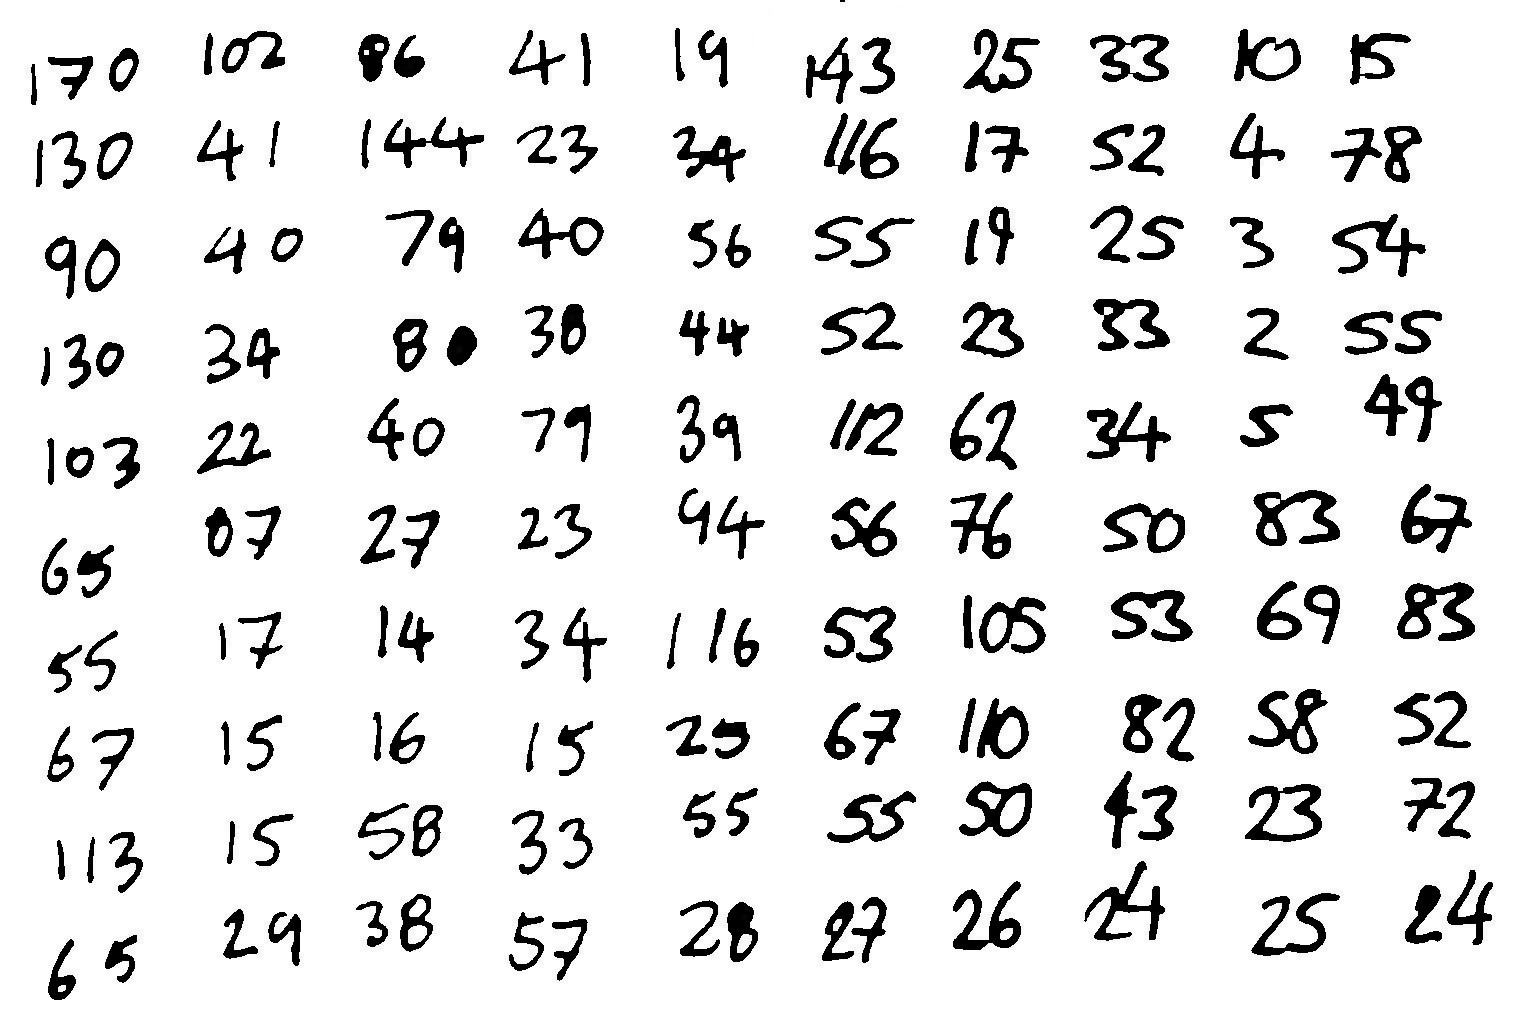 170 102 86 41 19 143 25 33 10 15
130 41 144 23 34 116 17 52 4 78
90 40 79 40 56 55 19 25 3 54
130 34 80 38 44 52 23 33 2 55
103 22 40 79 39 112 62 34 5 49
65 87 27 23 94 56 76 50 83 67
55 17 14 34 116 53 105 53 69 83
67 15 16 15 25 67 110 82 58 52
113 15 58 33 55 55 50 43 23 72
65 29 38 57 28 27 26 24 25 24